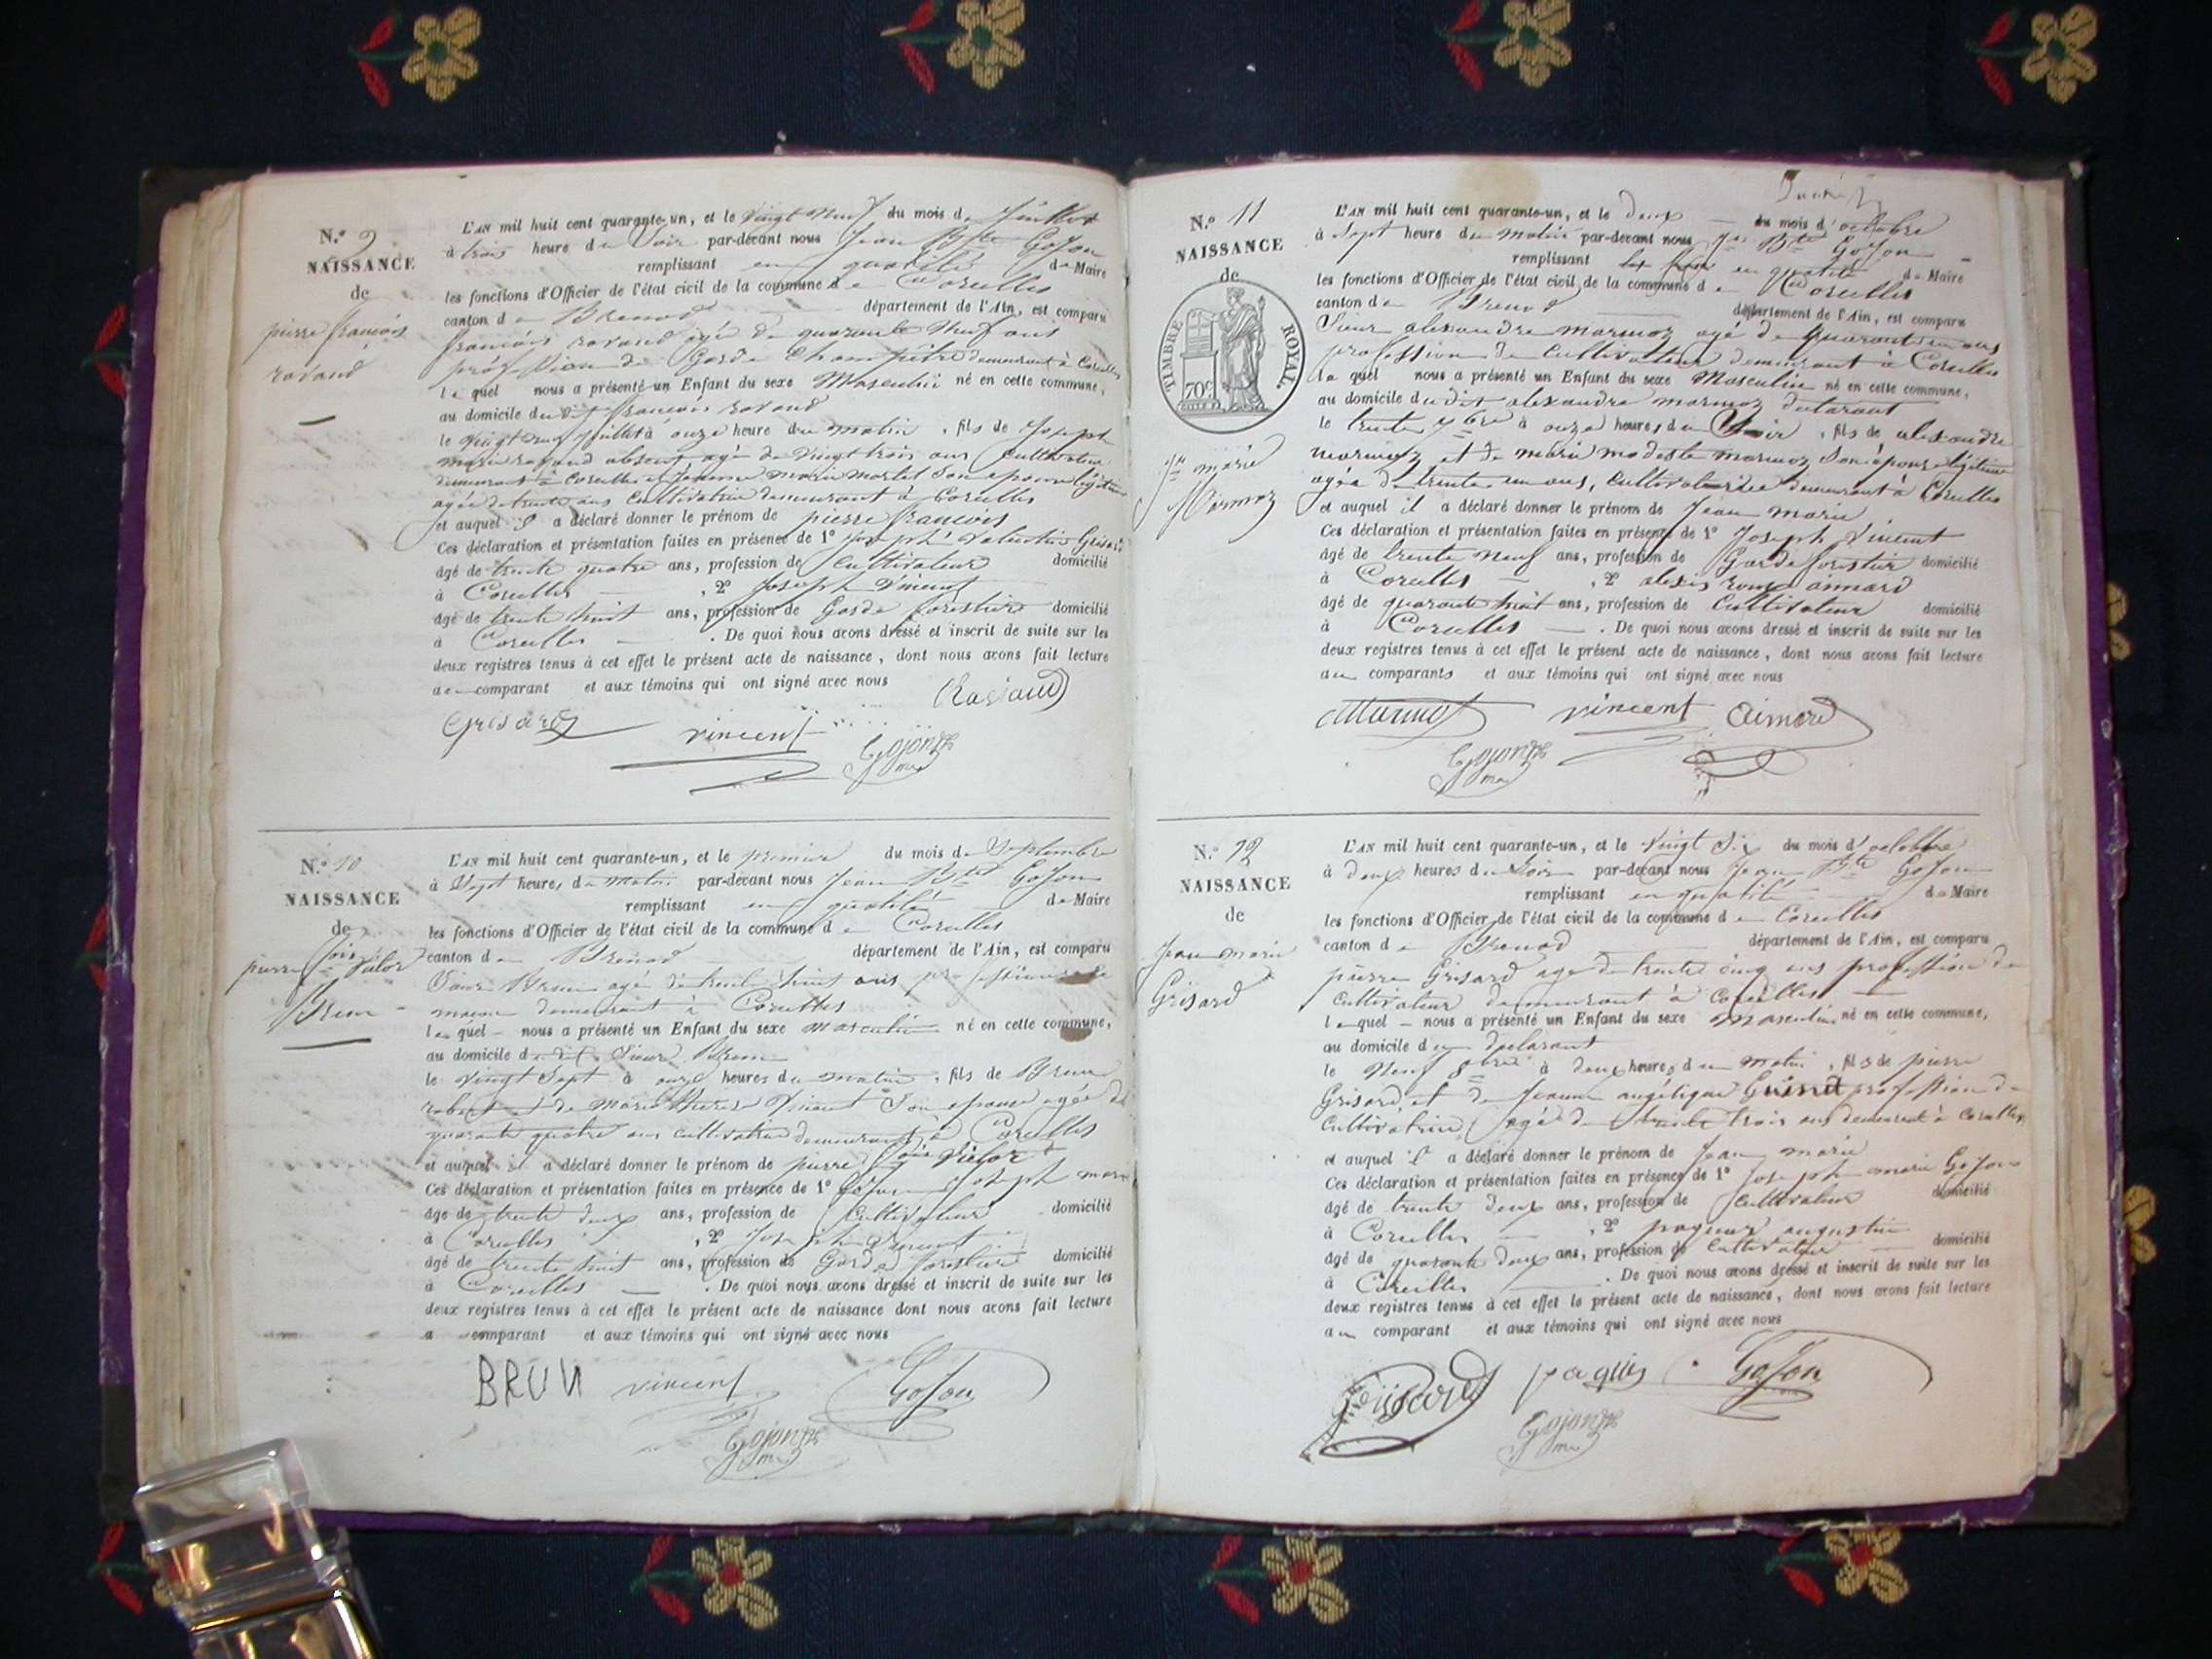 N.º 9
NAISSANCE
de
pierre françois
ravaud
L'AN mil huit cent quarante-un, et le vingt neuf du mois de Juillet
à trois heure du Soir par-devant nous Jean Bte Gojon
remplissant en qualité de Maire
les fonctions d'Officier de l'état civil de la commune de Corcelles
canton de Brenod département de l'Ain, est comparu
françois ravaud agé de quarante Neuf ans
profession de Garde Champêtre demeurant à Corcelles
lequel nous a présenté un Enfant du sexe Masculin né en cette commune,
au domicile dudit françois ravaud
le vingt neuf Juillet à onze heure du matin, fils de Joseph
marie ravaud absent agé de vingt trois ans Cultivateur
demeurant à Corcelles et Jeanne marie martel Son epouse légitime
agée de trente ans Cultivatrice demeurant à Corcelles
et auquel il a déclaré donner le prénom de pierre françois
Ces déclaration et présentation faites en présence de 1º Joseph Valentin Grisard
âgé de trente quatre ans, profession de Cultivateur domicilié
à Corcelles, 2º Joseph Vincent
âgé de trente huit ans, profession de Garde forestier domicilié
à Corcelles. De quoi nous avons dressé et inscrit de suite sur les
deux registres tenus à cet effet le présent acte de naissance, dont nous avons fait lecture
au comparant et aux témoins qui ont signé avec nous
Ravaud
Grisard vincent Gojon
N.º 10
NAISSANCE
de
pierre fois Victor
Brun
L'AN mil huit cent quarante-un, et le premier du mois de Septembre
à Sept heures du matin par-devant nous Jean Bte Gojon
remplissant en qualité de Maire
les fonctions d'Officier de l'état civil de la commune de Corcelles
canton de Brenod département de l'Ain, est comparu
Sieur Brun agé de trente huit ans profession de
maçon demeurant à Corcelles
lequel nous a présenté un Enfant du sexe masculin né en cette commune,
au domicile dudit Sieur Brun
le vingt Sept à onze heures du matin, fils de Brun
robert et de Marie Vincent Son epouse agée de
quarante quatre ans cultivatrice demeurant à Corcelles
et auquel il a déclaré donner le prénom de pierre fois Victor
Ces déclaration et présentation faites en présence de 1º Gojon Joseph marie
âgé de trente deux ans, profession de Cultivateur domicilié
à Corcelles, 2º Joseph Vincent
âgé de trente huit ans, profession de Garde forestier domicilié
à Corcelles. De quoi nous avons dressé et inscrit de suite sur les
deux registres tenus à cet effet le présent acte de naissance dont nous avons fait lecture
a comparant et aux témoins qui ont signé avec nous
BRUN vincent Gojon
Gojon
N.º 11
NAISSANCE
de
TIMBRE ROYAL.
70 c
Jn marie
Marmoz
L'AN mil huit cent quarante-un, et le deux du mois d'octobre
à Sept heure du matin par-devant nous Jn Bte Gojon
remplissant en qualité de Maire
les fonctions d'Officier de l'état civil de la commune de Corcelles
canton de Brenod département de l'Ain, est comparu
Sieur alexandre marmoz agé de quarante un ans
profession de Cultivateur demeurant à Corcelles
lequel nous a présenté un Enfant du sexe Masculin né en cette commune,
au domicile dudit alexandre marmoz declarant
le trente 7bre à onze heures du Soir, fils de alexandre
marmoz et de marie modeste marmoz Son épouse légitime
agée de trente un ans, Cultivatrice demeurant à Corcelles
et auquel il a déclaré donner le prénom de Jean marie
Ces déclaration et présentation faites en présence de 1º Joseph Vincent
âgé de trente neuf ans, profession de Garde forestier domicilié
à Corcelles, 2º alexis aimard
âgé de quarante huit ans, profession de Cultivateur domicilié
à Corcelles. De quoi nous avons dressé et inscrit de suite sur les
deux registres tenus à cet effet le présent acte de naissance, dont nous avons fait lecture
au comparants et aux témoins qui ont signé avec nous
Marmoz vincent Aimard
Gojon
N.º 12
NAISSANCE
de
Jean marie
Grisard
L'AN mil huit cent quarante-un, et le Vingt Six du mois d'octobre
à deux heures du Soir par-devant nous Jean Bte Gojon
remplissant en qualité de Maire
les fonctions d'Officier de l'état civil de la commune de Corcelles
canton de Brenod département de l'Ain, est comparu
pierre Grisard agé de trente cinq ans profession de
Cultivateur demeurant à Corcelles
lequel nous a présenté un Enfant du sexe Masculin né en cette commune,
au domicile du declarant
le Neuf 8bre à deux heures du matin, fils de pierre
Grisard et de Jeanne angélique profession de
Cultivatrice agée de trente trois ans demeurant à Corcelles
et auquel il a déclaré donner le prénom de Jean marie
Ces déclaration et présentation faites en présence de 1º Joseph marie Gojon
âgé de trente deux ans, profession de Cultivateur domicilié
à Corcelles, 2º augustin
âgé de quarante deux ans, profession de Cultivateur domicilié
à Corcelles. De quoi nous avons dressé et inscrit de suite sur les
deux registres tenus à cet effet le présent acte de naissance, dont nous avons fait lecture
au comparant et aux témoins qui ont signé avec nous
Grisard paquis Gojon
Gojon